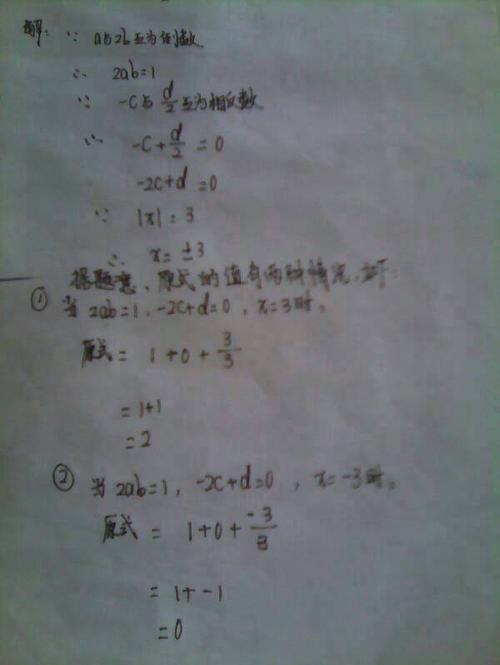 解: ∵ a与2b互为倒数
∴ 2ab=1
∵ -c与d/2互为相反数
∴ -c+d/2=0
-2c+d=0
∵ |x|=3
∴ x=±3
据题意、原式的值有两种情况,
① 当2ab=1,-2c+d=0,x=3时。
原式= 1+0+3/3
=1+1
=2
② 当2ab=1,-2c+d=0,x=-3时。
原式= 1+0+-3/3
=1+-1
=0